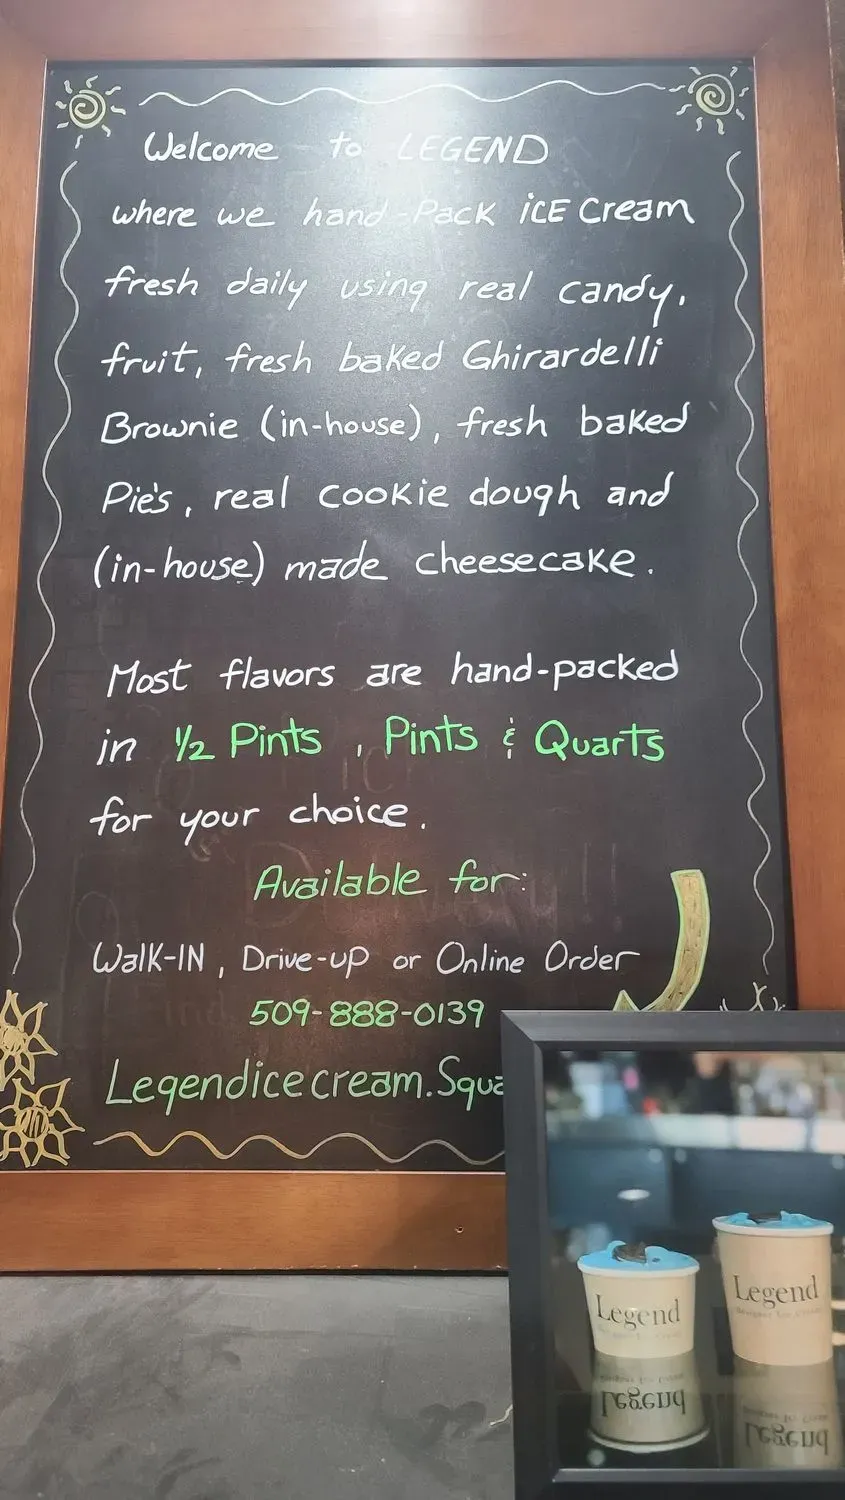 Welcome to LEGEND
where we hand-Pack iCE Cream
fresh daily using real candy,
fruit, fresh baked Ghirardelli
Brownie (in-house), fresh baked
Pie's, real cookie dough and
(in-house) made cheesecake.
Most flavors are hand-packed
in 1/2 Pints, Pints & Quarts
for your choice.
Available for:
Walk-IN, Drive-up or Online Order
509-888-0139
Legendicecream.Squa
Legend
Legend
Designer Ice Cream
Legend
Legend